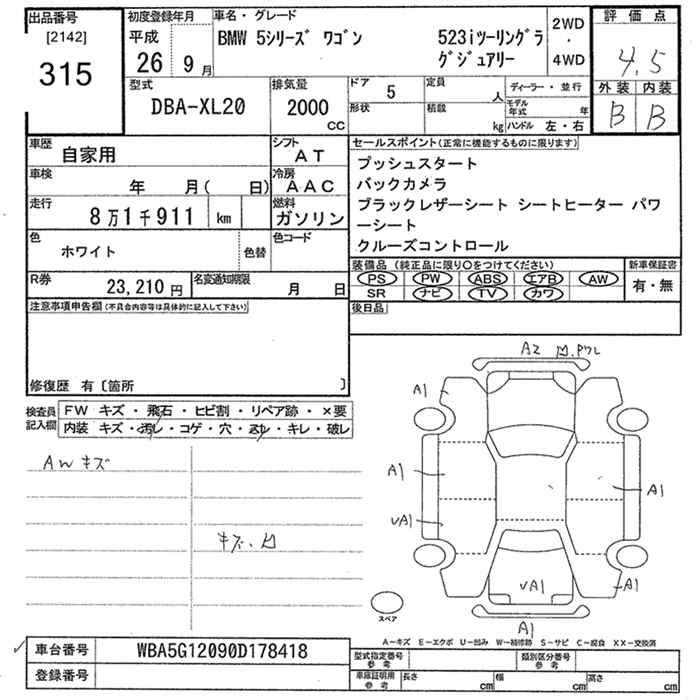 出品番号
[2142]
315
初度登録年月
平成
26 9 月
車名・グレード
BMW 5シリーズ ワゴン
523iツーリングラグジュアリー
2WD
・
4WD
評価点
4.5
外装 内装
B B
型式
DBA-XL20
排気量
2000
CC
ドア
5
形状
定員
人
積載
kg
ディーラー・並行
モデル年式 年
ハンドル 左・右
車歴
自家用
シフト
AT
車検
年 月( 日)
冷房
AAC
走行
8万1千911 km
燃料
ガソリン
色
ホワイト
色替
色コード
R券
23,210 円
名変通知期限
月 日
セールスポイント(正常に機能するものに限ります)
プッシュスタート
バックカメラ
ブラックレザーシート シートヒーター パワ
ーシート
クルーズコントロール
装備品 (純正品に限り○をつけてください)
PS PW ABS エアB AW
SR ナビ TV カワ
新車保証書
有・無
後日品
注意事項申告欄(不具合内容等は具体的に記入して下さい)
修復歴 有〔箇所 〕
検査員
記入欄
FW キズ・飛石・ヒビ割・リペア跡・×要
内装 キズ・汚レ・コゲ・穴・スレ・キレ・破レ
AWキズ
キズ・凹
A2
A1
A1
A1
A1
υA1
υA1
A1
A1
スペア
A－キズ E－エクボ U－凹み W－補修跡 S－サビ C－腐食 XX－交換済
車台番号
WBA5G12090D178418
登録番号
型式指定番号
参考
類別区分番号
参考
車庫証明用
参考
長さ cm
幅 cm
高さ cm